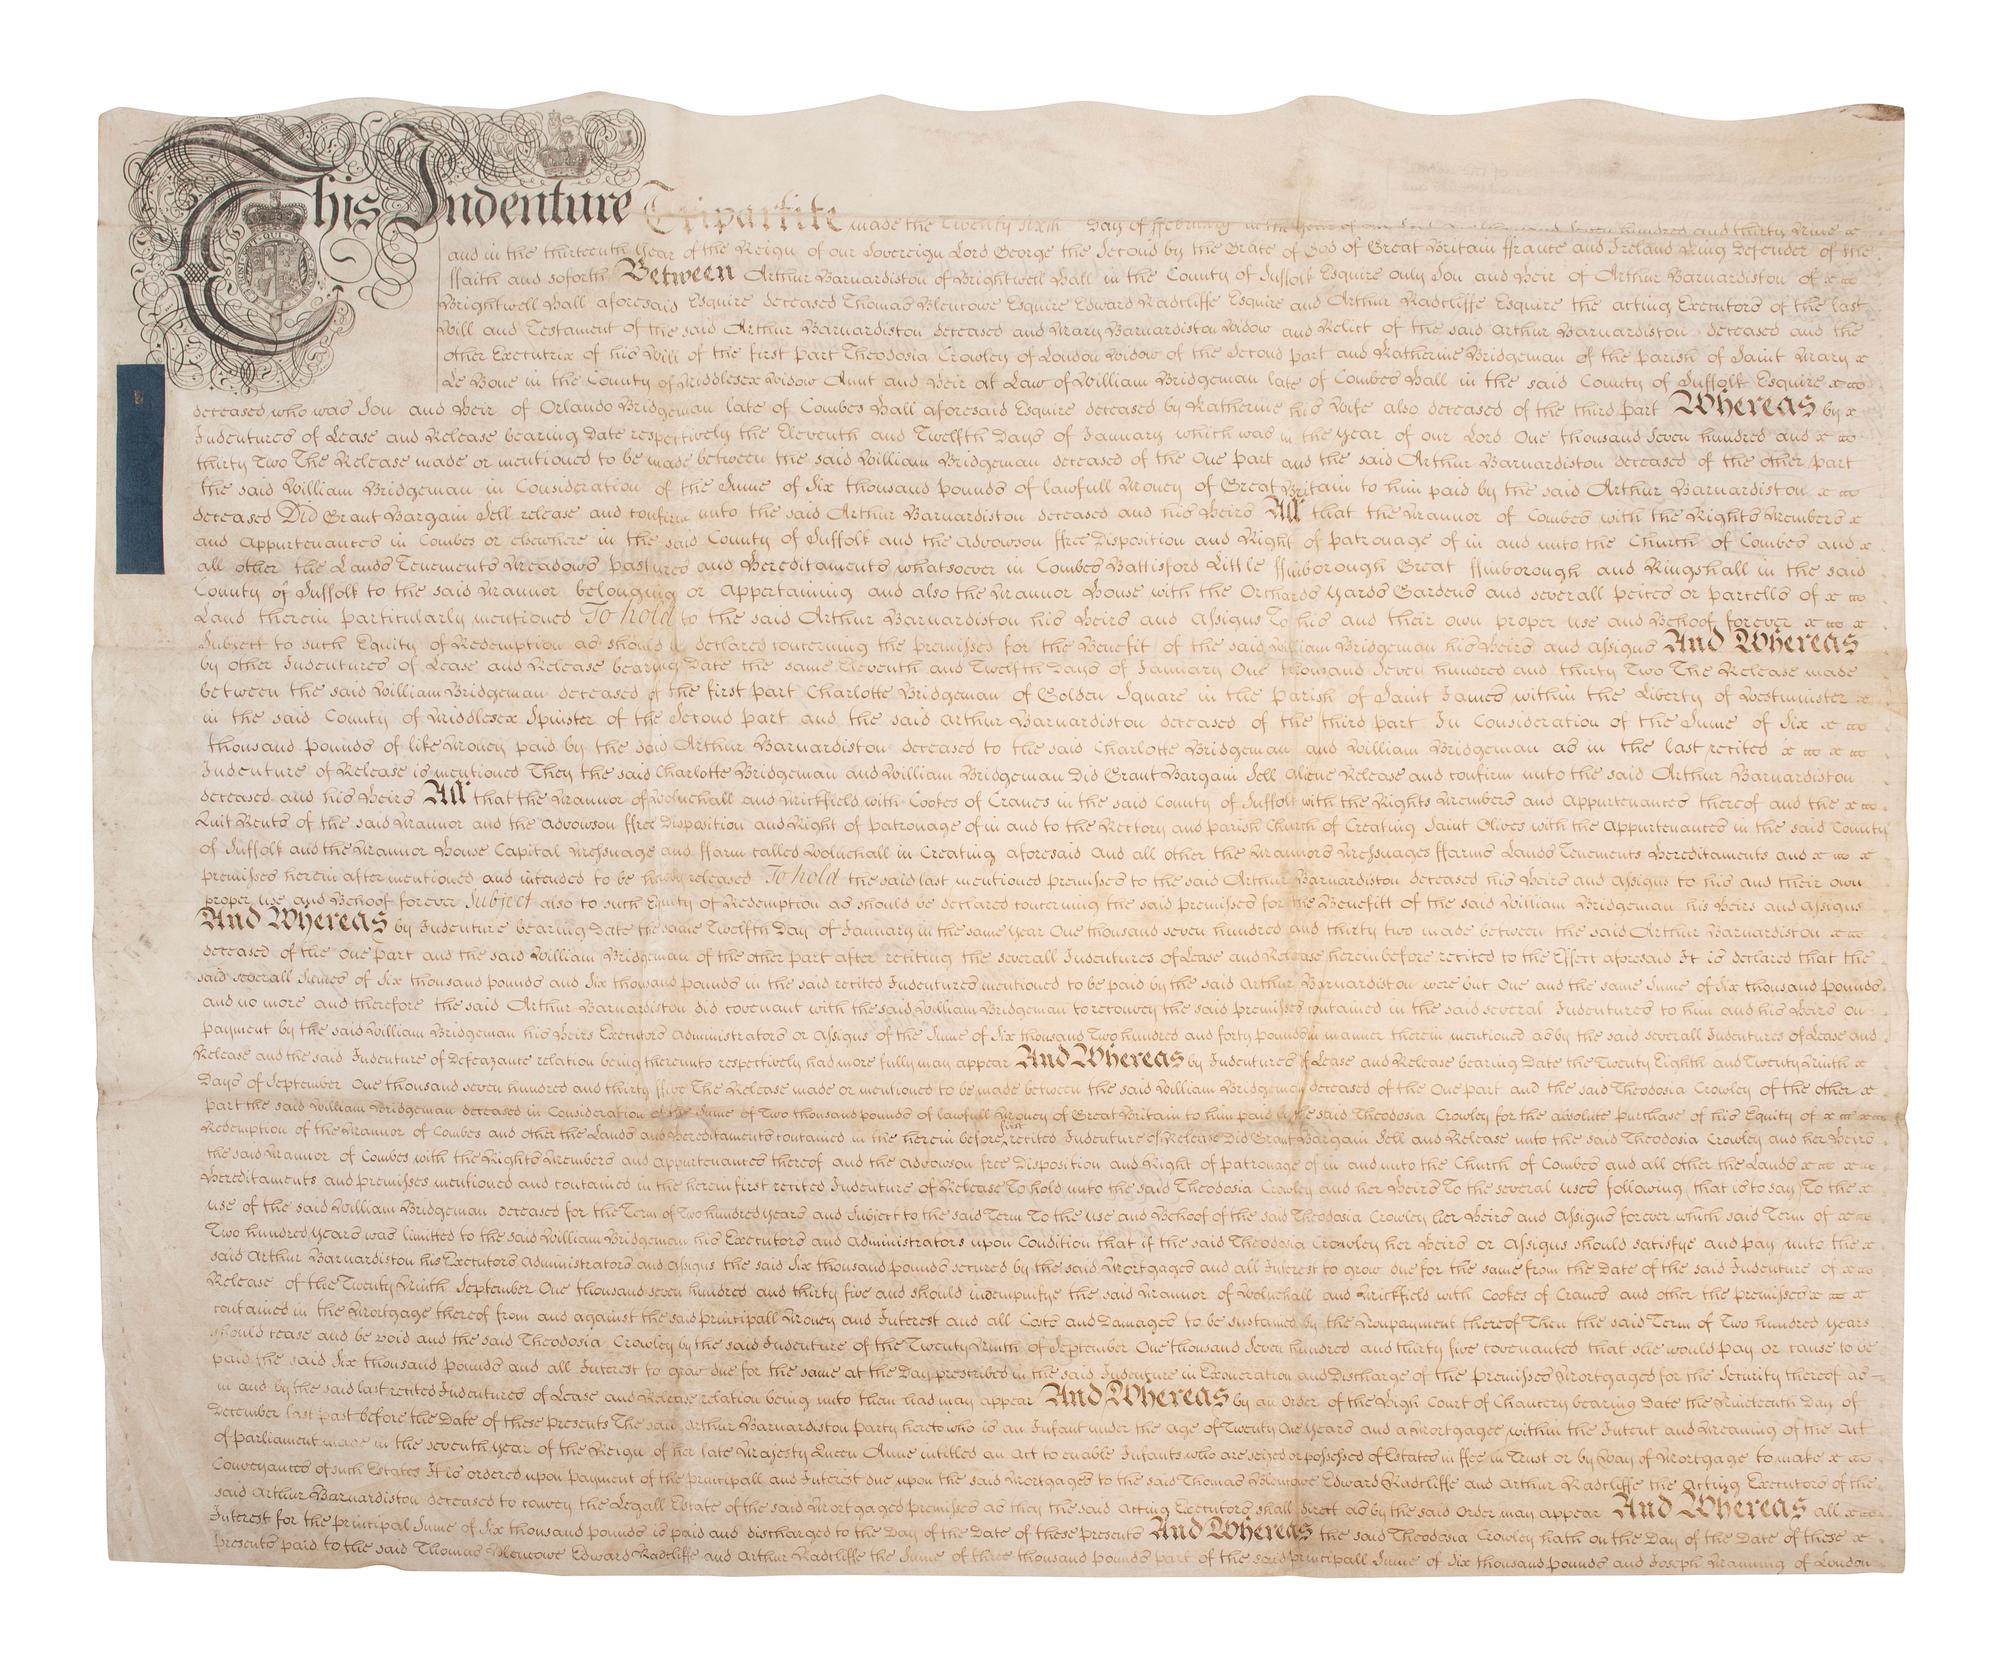 This Indenture Tripartite made the Twenty sixth Day of ffebruary in the Year of our Lord One thousand Seven hundred and thirty Nine
and in the thirteenth Year of the Reign of our Sovereign Lord George the Second by the Grace of God of Great Britain ffrance and Ireland King Defender of the
ffaith and soforth Between Arthur Barnardiston of Brightwell Hall in the County of Suffolk Esquire only Son and Heir of Arthur Barnardiston of
Brightwell Hall aforesaid Esquire deceased Thomas Blencowe Esquire Edward Radcliffe Esquire and Arthur Radcliffe Esquire the acting Executors of the last
Will and Testament of the said Arthur Barnardiston deceased and Mary Barnardiston Widow and Relict of the said Arthur Barnardiston deceased and the
other Executrix of his Will of the first part Theodosia Crowley of London Widow of the Second part and Katherine Bridgeman of the parish of Saint Mary
Le Bone in the County of Middlesex Widow Aunt and Heir at Law of William Bridgeman late of Combes Hall in the said County of Suffolk Esquire
deceased who was Son and Heir of Orlando Bridgeman late of Combes Hall aforesaid Esquire deceased by Katherine his Wife also deceased of the third part Whereas by
Indentures of Lease and Release bearing Date respectively the Eleventh and Twelfth Days of January which was in the Year of our Lord One thousand Seven hundred and
thirty Two The Release made or mentioned to be made between the said William Bridgeman deceased of the One part and the said Arthur Barnardiston deceased of the other part
the said William Bridgeman in Consideration of the Sume of Six thousand pounds of lawfull Money of Great Britain to him paid by the said Arthur Barnardiston
deceased Did Grant Bargain Sell release and confirm unto the said Arthur Barnardiston deceased and his Heirs All that the Mannor of Combes with the Rights Members
and Appurtenances in Combes or elsewhere in the said County of Suffolk and the Advowson ffree Disposition and Right of patronage of in and unto the Church of Combes and
all other the Lands Tenements Meadows pastures and Hereditaments whatsoever in Combes Battisford Little ffinborough Great ffinborough and Ringshall in the said
County of Suffolk to the said Mannor belonging or appertaining and also the Mannor House with the Orchards Yards Gardens and severall peices or parcells of
Land therein particularly mentioned To hold to the said Arthur Barnardiston his Heirs and Assigns To his and their own proper use and Behoof forever
Subject to such Equity of Redemption as should declared concerning the premisses for the Benefit of the said William Bridgeman his Heirs and Assigns And Whereas
by other Indentures of Lease and Release bearing Date the same Eleventh and Twelfth Days of January One thousand Seven hundred and thirty Two The Release made
between the said William Bridgeman deceased of the first part Charlotte Bridgeman of Golden Square in the parish of Saint James within the Liberty of Westminster
in the said County of Middlesex Spinster of the Second part and the said Arthur Barnardiston deceased of the third part In Consideration of the Sume of Six
thousand pounds of like Money paid by the said Arthur Barnardiston deceased to the said Charlotte Bridgeman and William Bridgeman as in the last recited
Indenture of Release is mentioned They the said Charlotte Bridgeman and William Bridgeman Did Grant Bargain Sell Aliene Release and confirm unto the said Arthur Barnardiston
deceased and his Heirs All that the Mannor of Wolnehall and Mickfield with Cookes of Cranes in the said County of Suffolk with the Rights Members and Appurtenances thereof and the
Quit Rents of the said Mannor and the Advowson ffree Disposition and Right of patronage of in and to the Rectory and parish Church of Creating Saint Olives with the Appurtenances in the said County
of Suffolk and the Mannor House Capital Messuage and ffarm called Wolnehall in Creating aforesaid and all other the Mannors Messuages ffarms Lands Tenements Hereditaments and
premisses herein after mentioned and intended to be released To hold the said last mentioned premisses to the said Arthur Barnardiston deceased his Heirs and Assigns to his and their own
proper use and Behoof forever Subject also to such Equity of Redemption as should be declared concerning the said premisses for the Benefitt of the said William Bridgeman his Heirs and Assigns
And Whereas by Indenture bearing Date the same Twelfth Day of January in the same Year One thousand seven hundred and thirty two made between the said Arthur Barnardiston
deceased of the One part and the said William Bridgeman of the other part after reciting the severall Indentures of Lease and Release hereinbefore recited to the Effect aforesaid It is declared that the
said severall Sumes of Six thousand pounds and Six thousand pounds in the said recited Indentures mentioned to be paid by the said Arthur Barnardiston were but One and the same Sume of Six thousand pounds
and no more and therefore the said Arthur Barnardiston did covenant with the said William Bridgeman to reconvey the said premisses contained in the said several Indentures to him and his Heirs on
payment by the said William Bridgeman his Heirs Executors Administrators or Assigns of the Sume of Six thousand Two hundred and forty pounds in manner therein mentioned as by the said severall Indentures of Lease and
Release and the said Indenture of Defeazance relation being thereunto respectively had more fully may appear And Whereas by Indentures of Lease and Release bearing Date the Twenty Eighth and Twenty Ninth
Days of September One thousand seven hundred and thirty ffive The Release made or mentioned to be made between the said William Bridgeman deceased of the One part and the said Theodosia Crowley of the other
part the said William Bridgeman deceased in Consideration of the Sume of Two thousand pounds of lawfull Money of Great Britain to him paid by the said Theodosia Crowley for the absolute purchase of his Equity of
Redemption of the Mannor of Combes and other the Lands and Hereditaments contained in the herein before first recited Indenture of Release Did Grant Bargain Sell and Release unto the said Theodosia Crowley and her Heirs
the said Mannor of Combes with the Rights Members and Appurtenances thereof and the Advowson free Disposition and Right of patronage of in and unto the Church of Combes and all other the Lands
Hereditaments and premisses mentioned and contained in the herein first recited Indenture of Release To hold unto the said Theodosia Crowley and her Heirs To the several uses following (that is to say) To the
use of the said William Bridgeman deceased for the Term of Two hundred Years and Subject to the said Term To the use and Behoof of the said Theodosia Crowley her Heirs and Assigns forever which said Term of
Two hundred Years was limited to the said William Bridgeman his Executors and Administrators upon Condition that if the said Theodosia Crowley her Heirs or Assigns should satisfye and pay unto the
said Arthur Barnardiston his Executors Administrators and Assigns the said Six thousand pounds secured by the said Mortgages and all Interest to grow due for the same from the Date of the said Indenture of
Release of the Twenty Ninth September One thousand seven hundred and thirty five and should indempnifye the said Mannor of Wolnehall and Mickfield with Cookes of Cranes and other the premisses
contained in the Mortgage thereof from and against the said principall Money and Interest and all Costs and Damages to be sustained by the Nonpayment thereof Then the said Term of Two hundred Years
should cease and be void and the said Theodosia Crowley by the said Indenture of the Twenty Ninth of September One thousand Seven hundred and thirty five covenanted that she would pay or cause to be
paid the said Six thousand pounds and all Interest to grow due for the same at the Day prescribed in the said Indenture in Exoneration and Discharge of the premisses Mortgaged for the Security thereof as
in and by the said last recited Indentures of Lease and Release relation being unto them had may appear And Whereas by an Order of the High Court of Chancery bearing Date the Nineteenth Day of
December last past before the Date of these presents The said Arthur Barnardiston party hereto who is an Infant under the Age of Twenty One Years and a Mortgagee within the Intent and Meaning of the Act
of parliament made in the seventh Year of the Reign of her late Majesty Queen Anne intitled an Act to enable Infants who are seized or possessed of Estates in ffee in Trust or by Way of Mortgage to make
Conveyances of such Estates It is ordered upon payment of the principall and Interest due upon the said Mortgages to the said Thomas Blencowe Edward Radcliffe and Arthur Radcliffe the Acting Executors of the
said Arthur Barnardiston deceased to convey the Legall Estate of the said Mortgaged premisses as they the said Acting Executors shall direct as by the said Order may appear And Whereas all
Interest for the principal Sume of Six thousand pounds is paid and discharged to the Day of the Date of these presents And Whereas the said Theodosia Crowley hath on the Day of the Date of these
presents paid to the said Thomas Blencowe Edward Radcliffe and Arthur Radcliffe the Sume of three thousand pounds part of the said principall Sume of Six thousand pounds and Joseph Manning of London